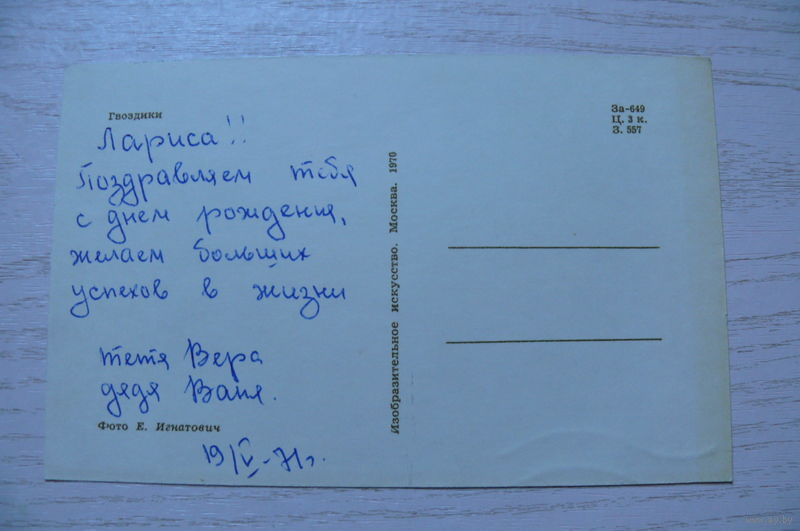 Гвоздики
Лариса!!
Поздравляем тебя
с днем рождения,
желаем больших
успехов в жизни
тетя Вера
дядя Ваня.
Фото Е. Игнатович
19/V-71г.
Изобразительное искусство. Москва. 1970
За-649
Ц. 3 к.
З. 557